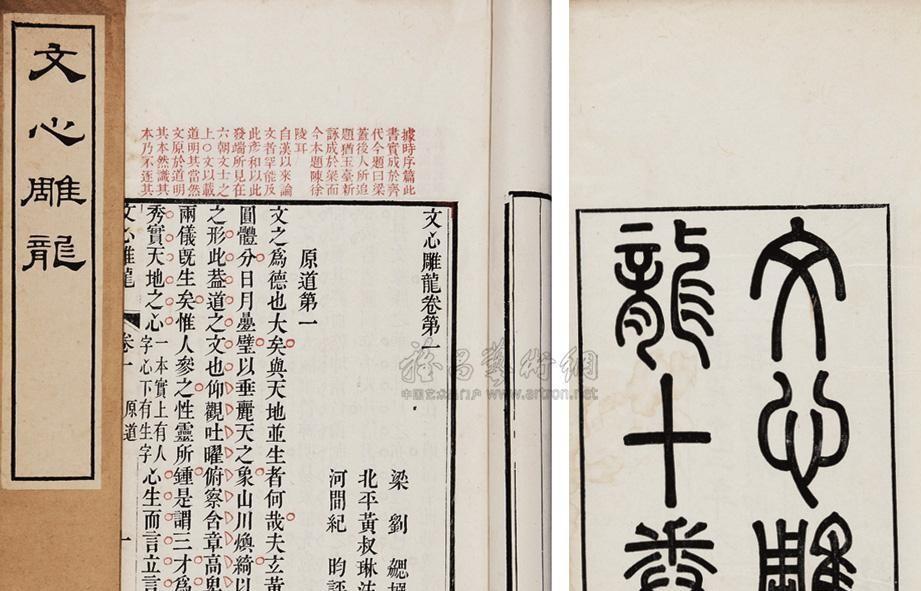 文心雕龍
據時序篇此
書實成於齊
代今題曰梁
蓋後人所追
題猶玉臺新
詠成於梁而
今本題陳徐
陵耳
自漢以來論
文者罕能及
此彥和以此
發端所見在
六朝文士之
上○文以載
道明其當然
文原於道明
其本然識其
本乃不逐其
文心雕龍卷第一
梁 劉 勰撰
北平黃叔琳注
河間紀 昀評
原道第一
文之爲德也大矣與天地並生者何哉夫玄黃
圓體分日月疊璧以垂麗天之象山川煥綺以
之形此蓋道之文也仰觀吐曜俯察含章高卑
兩儀旣生矣惟人參之性靈所鍾是謂三才爲
秀實天地之心一本實上有人字心下有生字心生而言立言
文心雕龍 卷一 原道 一
文心雕
龍十卷
雅昌藝術網
中国艺术品门户 www.artron.net